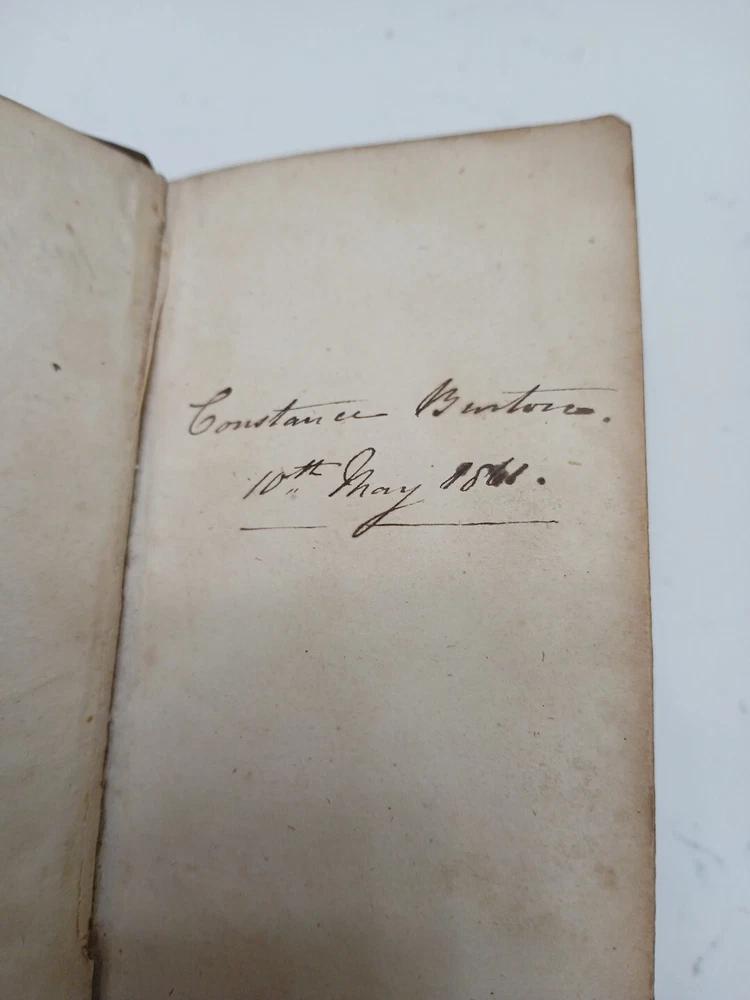 Constance Burton.
10th May 1861.